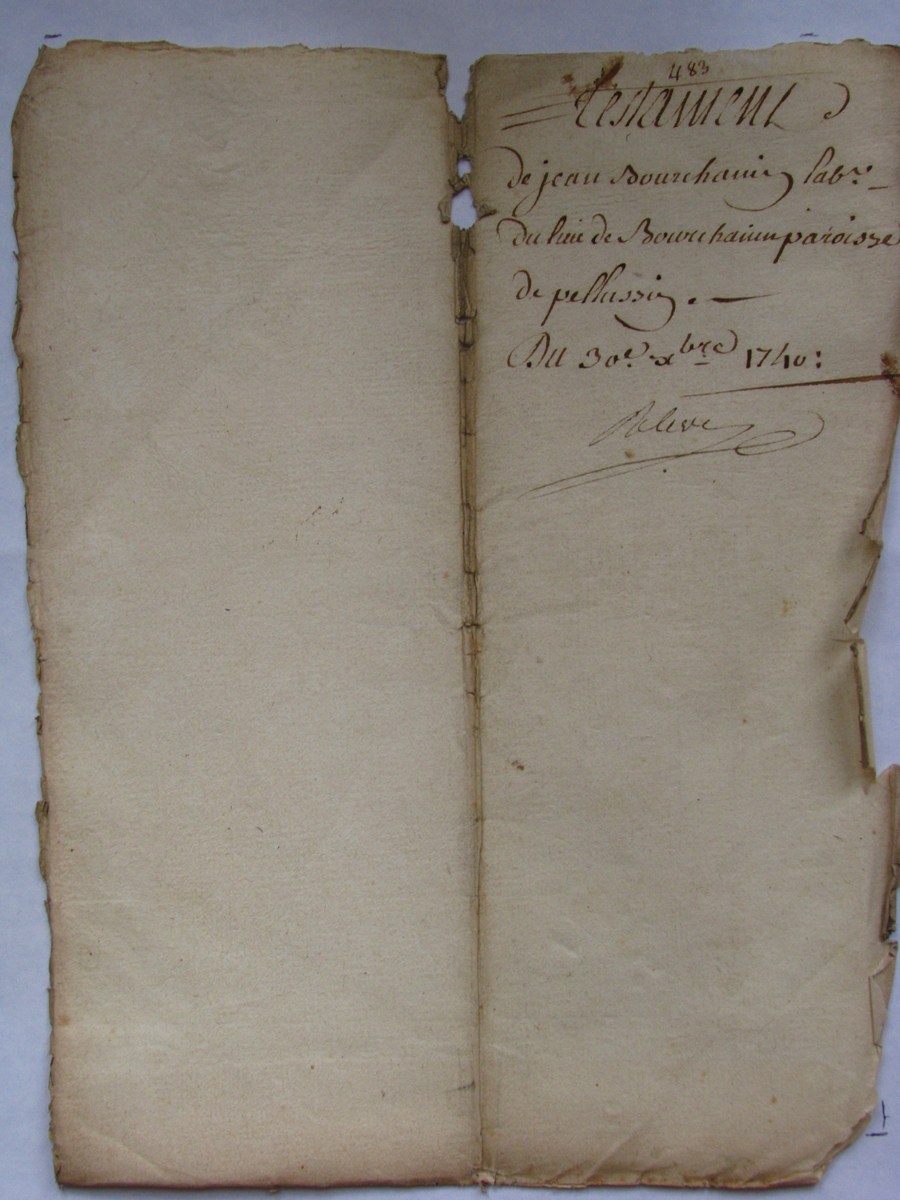 483
testament
de jean Bourchanin labr.
du lieu de Bourchanin paroisse
de pellussin.
Du 30e. xbre 1740: